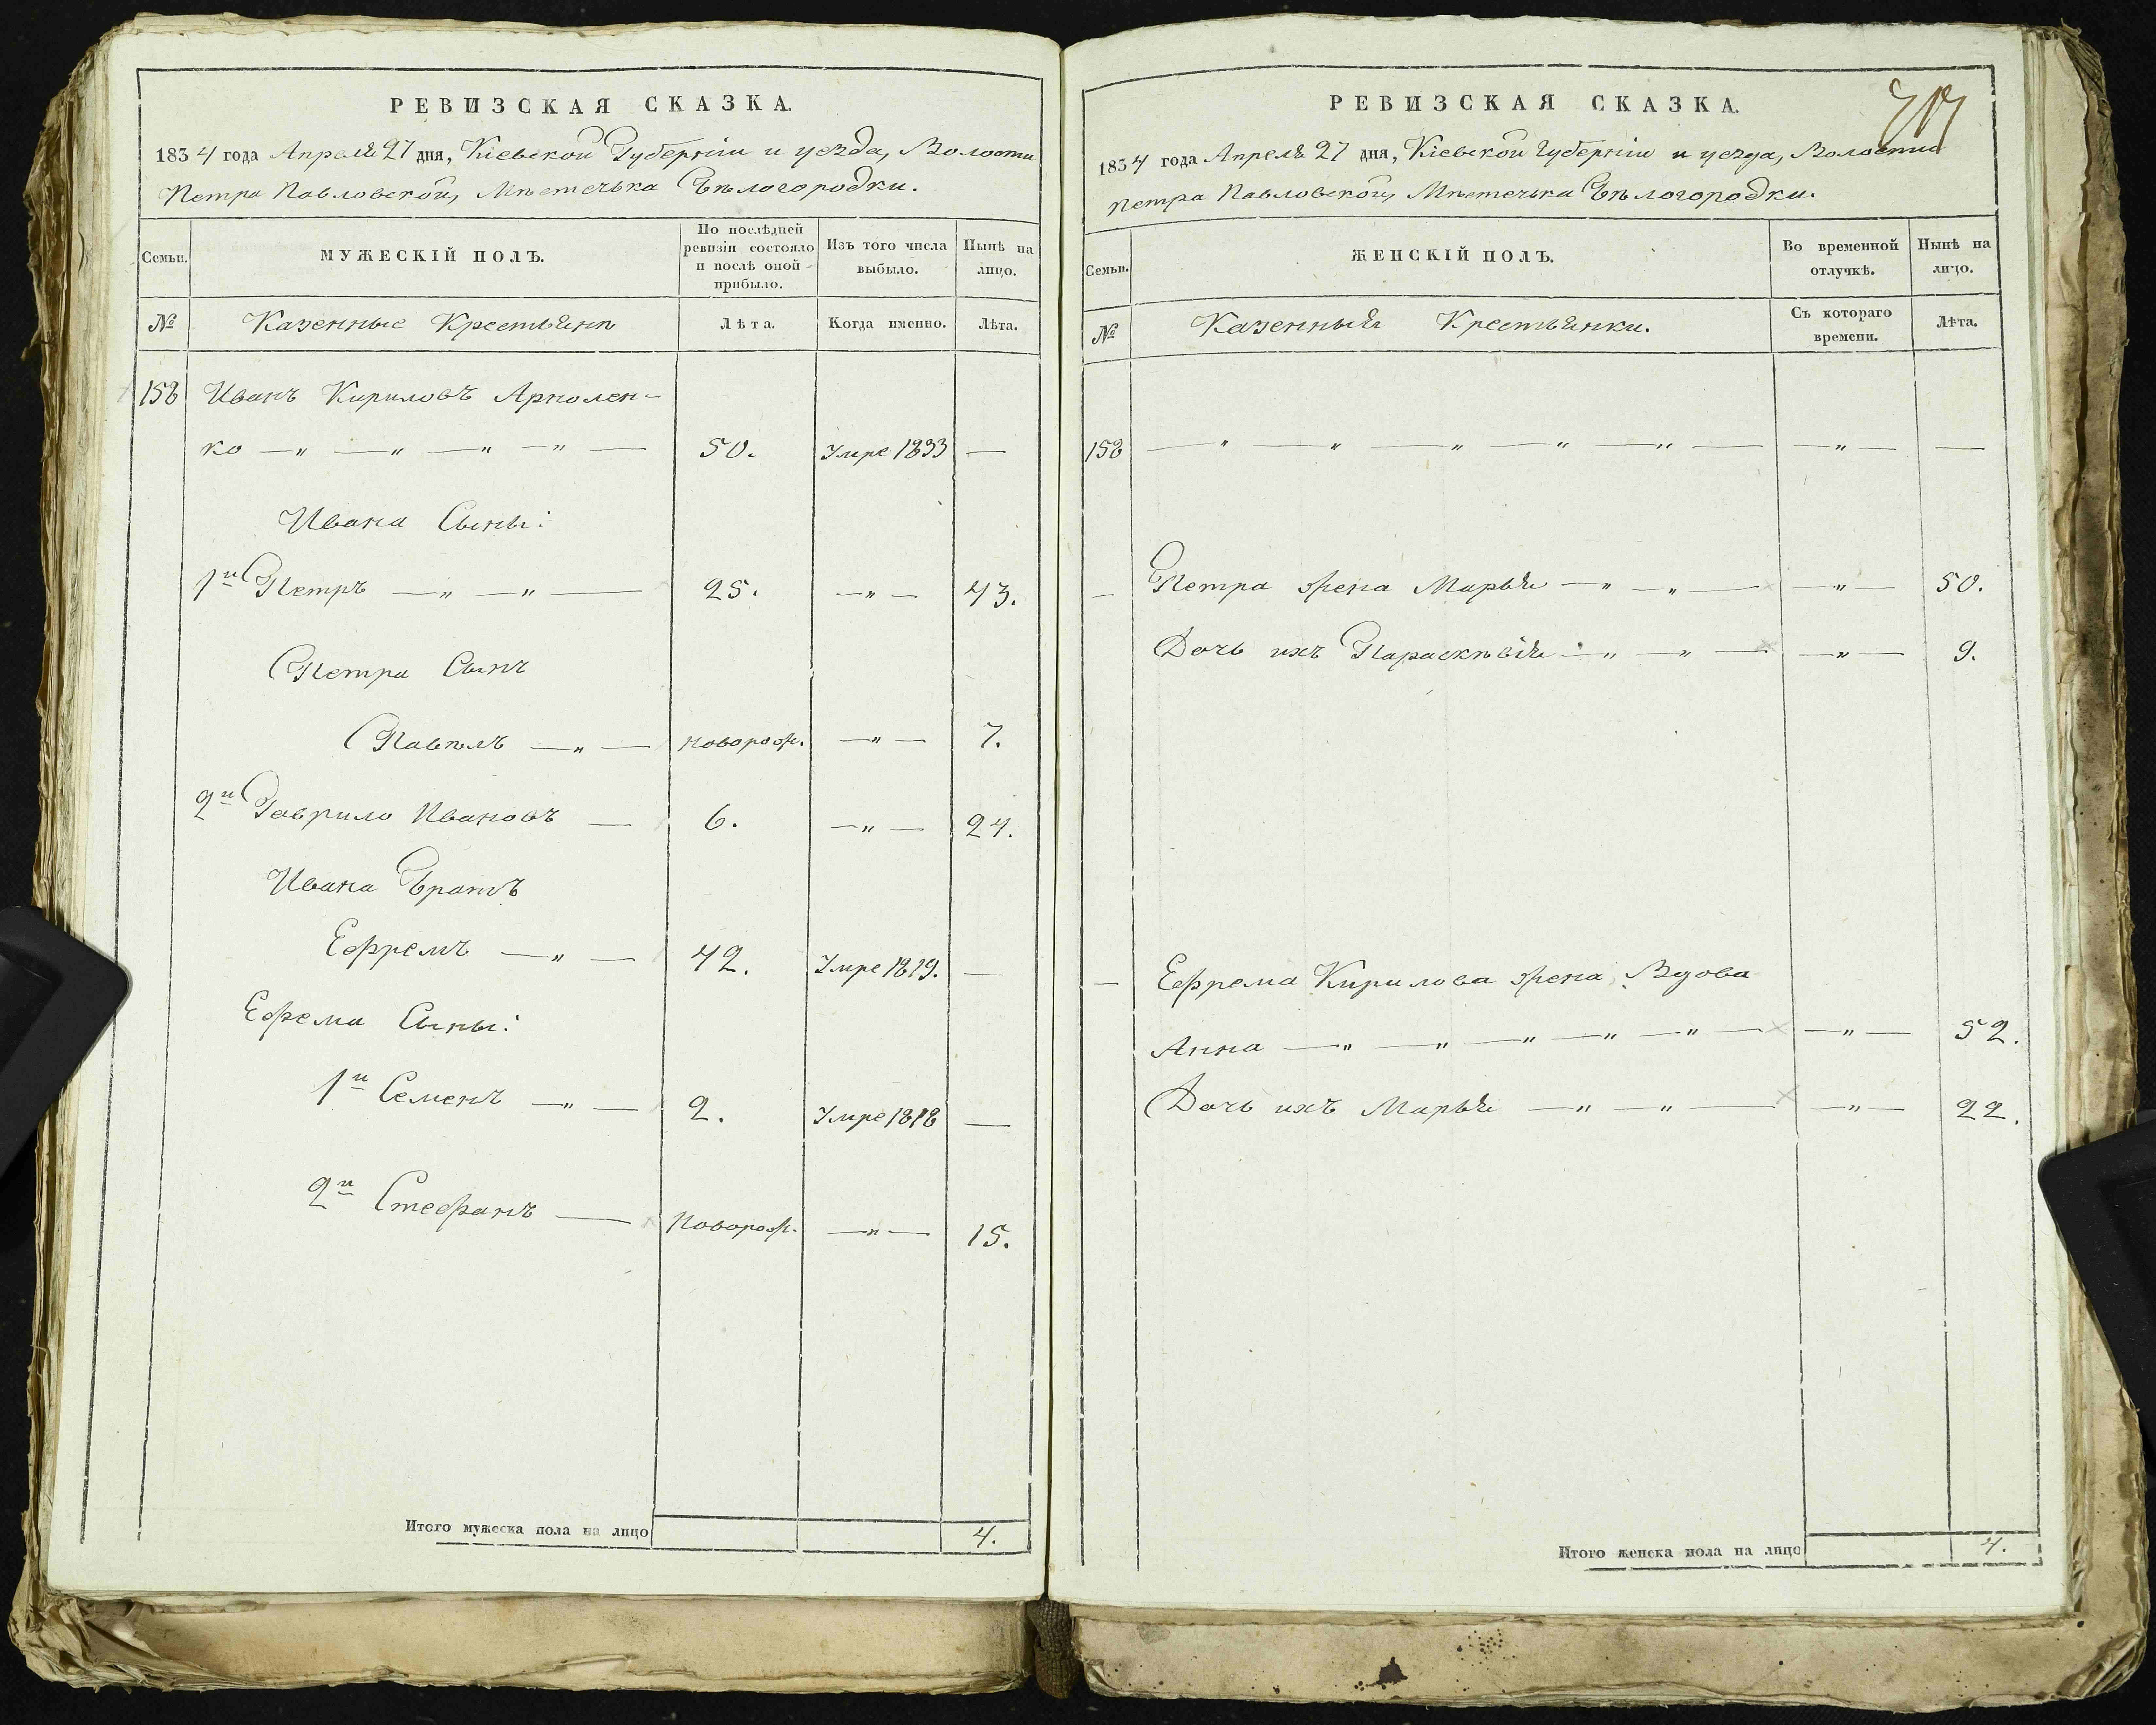 РЕВИЗСКАЯ СКАЗКА.
1834 года Апреля 27 дня, Кіевской Губерніи и уезда, Волости
Петра Павловской, Мѣстечька Бѣлогородки.
Семьи.
МУЖЕСКІЙ ПОЛЪ.
По послѣдней ревизіи состояло и послѣ оной прибыло.
Изъ того числа выбыло.
Нынѣ на лицо.
№
Казенные Крестьяне
Лѣта.
Когда именно.
Лѣта.
158 Иванъ Кириловъ Ярмолен-
ко — „ — „ — „ — „ — 50. Умре 1833 —
Ивана Сыны:
1й Петръ — „ — „ — 25. — „ — 43.
Петра Сынъ
Павелъ — „ — новорож. — „ — 7.
2й Гаврило Ивановъ — 6. — „ — 24.
Ивана Братъ
Ефремъ — „ — 42. Умре 1819. —
Ефрема Сыны:
1й Семенъ — „ — 2. Умре 1818 —
2й Стефанъ — Новорож. — „ — 15.
Итого мужеска пола на лицо 4.
РЕВИЗСКАЯ СКАЗКА.
1834 года Апреля 27 дня, Кіевской Губерніи и уезда, Волости
Петра Павловской, Мѣстечька Бѣлогородки.
Семьи.
ЖЕНСКІЙ ПОЛЪ.
Во временной отлучкѣ.
Нынѣ на лицо.
№
Казенныя Крестьянки.
Съ котораго времени.
Лѣта.
158 — „ — „ — „ — „ — „ — — „ — —
— Петра жена Марья — „ — „ — — „ — 50.
Дочь ихъ Параскѣвія — „ — „ — — „ — 9.
— Ефрема Кирилова жена, Вдова
Анна — „ — „ — „ — „ — „ — — „ — 52.
Дочь ихъ Марья — „ — „ — — „ — 22.
Итого женска пола на лицо 4.